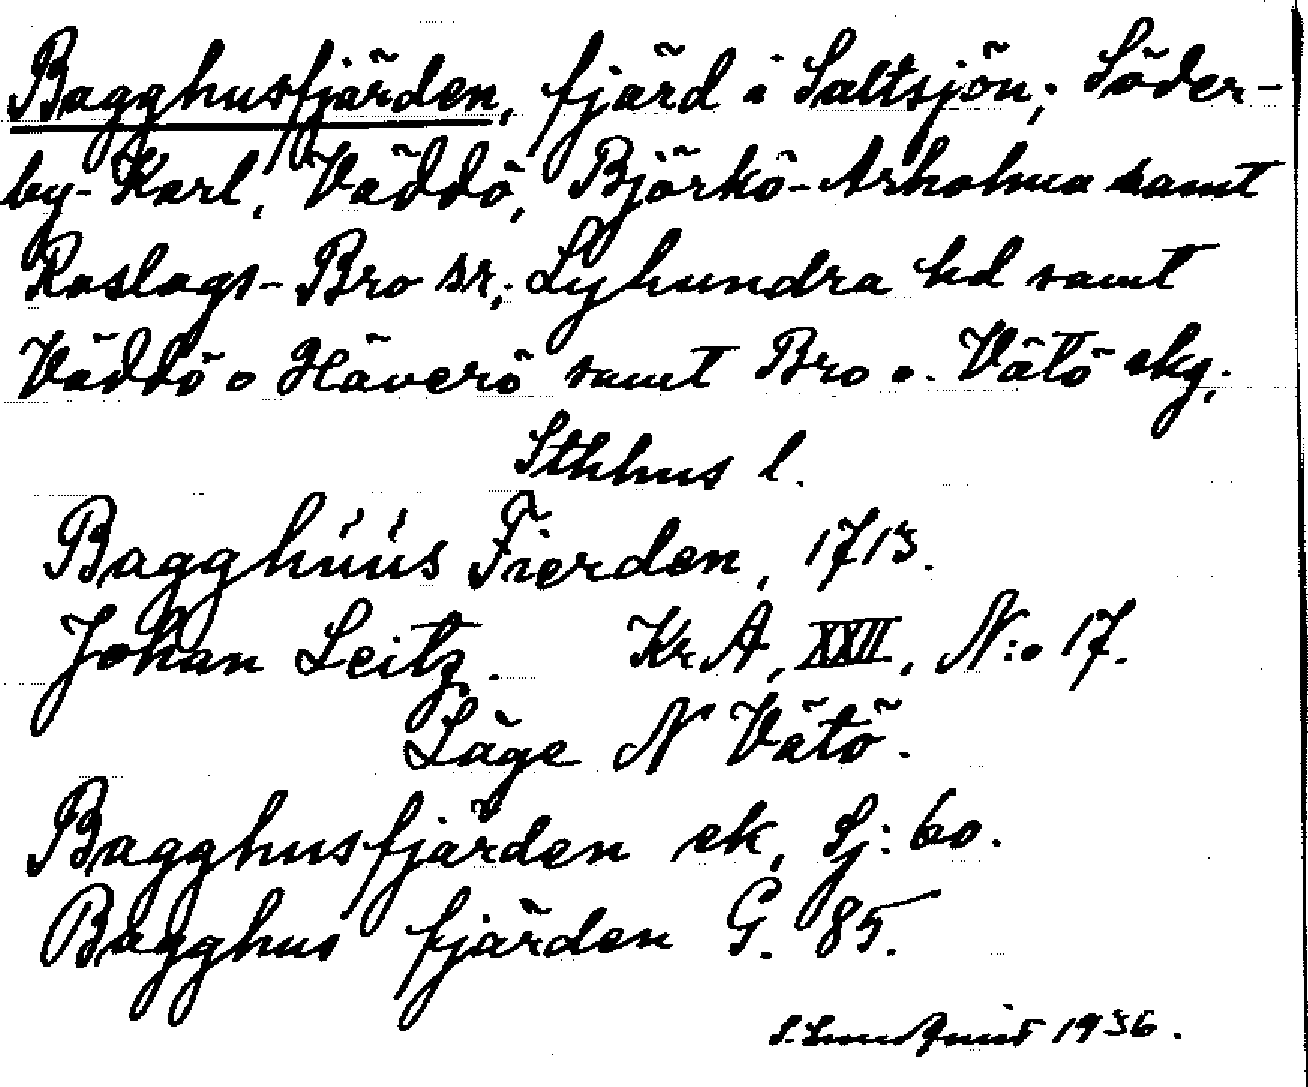 Bagghusfjärden, fjärd i Saltsjön; Söder-
by-Karl, Väddö, Björkö-Arholma samt
Roslags-Bro sr; Lyhundra hd samt
Väddö o Häverö samt Bro o. Vätö skg,
Sthhus l.
Bagghúús Fierden, 1713.
Johan Leitz. Kr. A, XXII, N:o 17.
Läge N Vätö.
Bagghusfjärden ek, Sj: 60.
Bagghus fjärden G. 85.
S. Lundquist 1936.